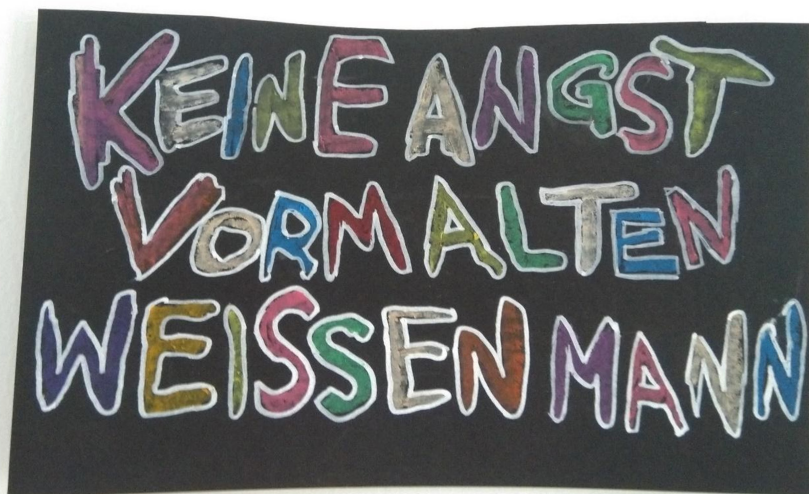 KEINE ANGST
VORM ALTEN
WEISSEN MANN